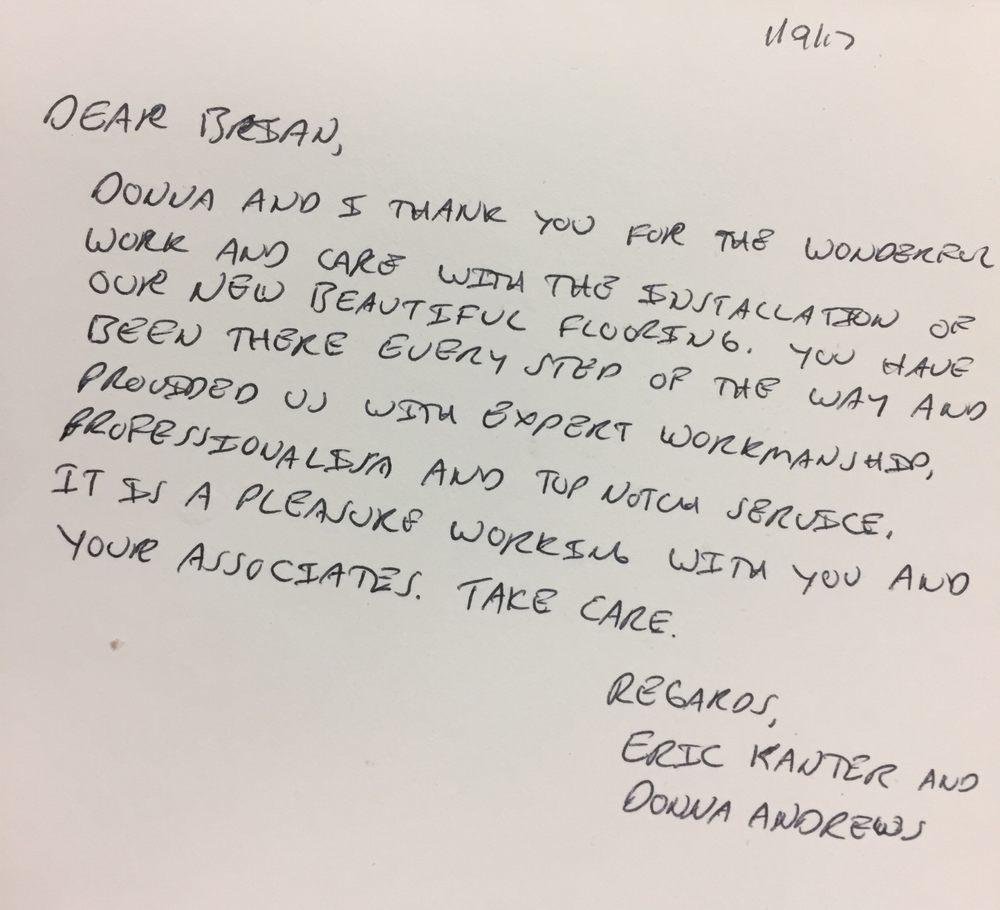 1/9/17
DEAR BRIAN,
DONNA AND I THANK YOU FOR THE WONDERFUL
WORK AND CARE WITH THE INSTALLATION OF
OUR NEW BEAUTIFUL FLOORING. YOU HAVE
BEEN THERE EVERY STEP OF THE WAY AND
PROVIDED US WITH EXPERT WORKMANSHIP,
PROFESSIONALISM AND TOP NOTCH SERVICE.
IT IS A PLEASURE WORKING WITH YOU AND
YOUR ASSOCIATES. TAKE CARE.
REGARDS,
ERIC KANTER AND
DONNA ANDREWS